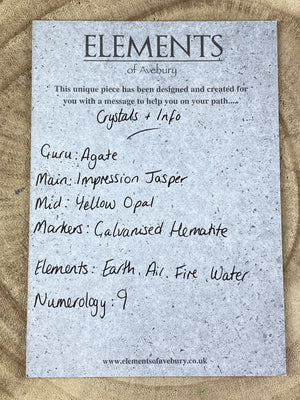 ELEMENTS
of Avebury
This unique piece has been designed and created for
you with a message to help you on your path....
Crystals + Info
Guru: Agate
Main: Impression Jasper
Mid: Yellow Opal
Markers: Galvanised Hematite
Elements: Earth, Air, Fire, Water
Numerology: 9
www.elementsofavebury.co.uk